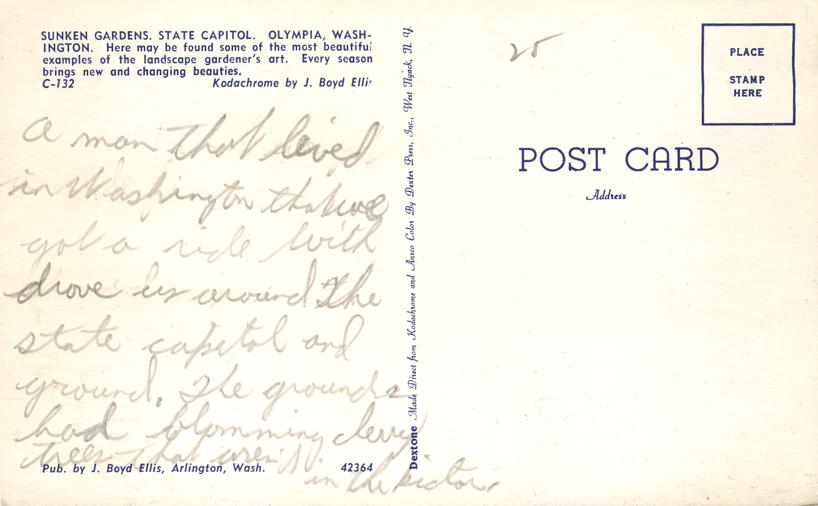 SUNKEN GARDENS. STATE CAPITOL. OLYMPIA, WASH-
INGTON. Here may be found some of the most beautiful
examples of the landscape gardener's art. Every season
brings new and changing beauties.
C-132 Kodachrome by J. Boyd Ellis
a man that lived
in Washington that we
got a ride with
drove us around The
state capitol and
ground. The grounds
had blomming
trees that aren't
in the pictor.
Pub. by J. Boyd Ellis, Arlington, Wash. 42364
Dextone Made Direct from Kodachrome and Ansco Color By Dexter Press, Inc., West Nyack, N. Y.
25
PLACE
STAMP
HERE
POST CARD
Address